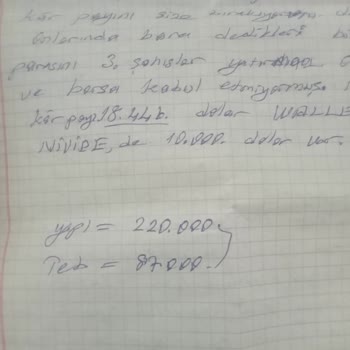 kâr payını size
onlarında bana dedikleri bi
parasını 3. şahıslar
ve borsa kabul etmiyormuş.
kâr payı 18.446. dolar WALLE
de 10.000. dolar var.
yapı = 220.000.
Teb = 87.000.